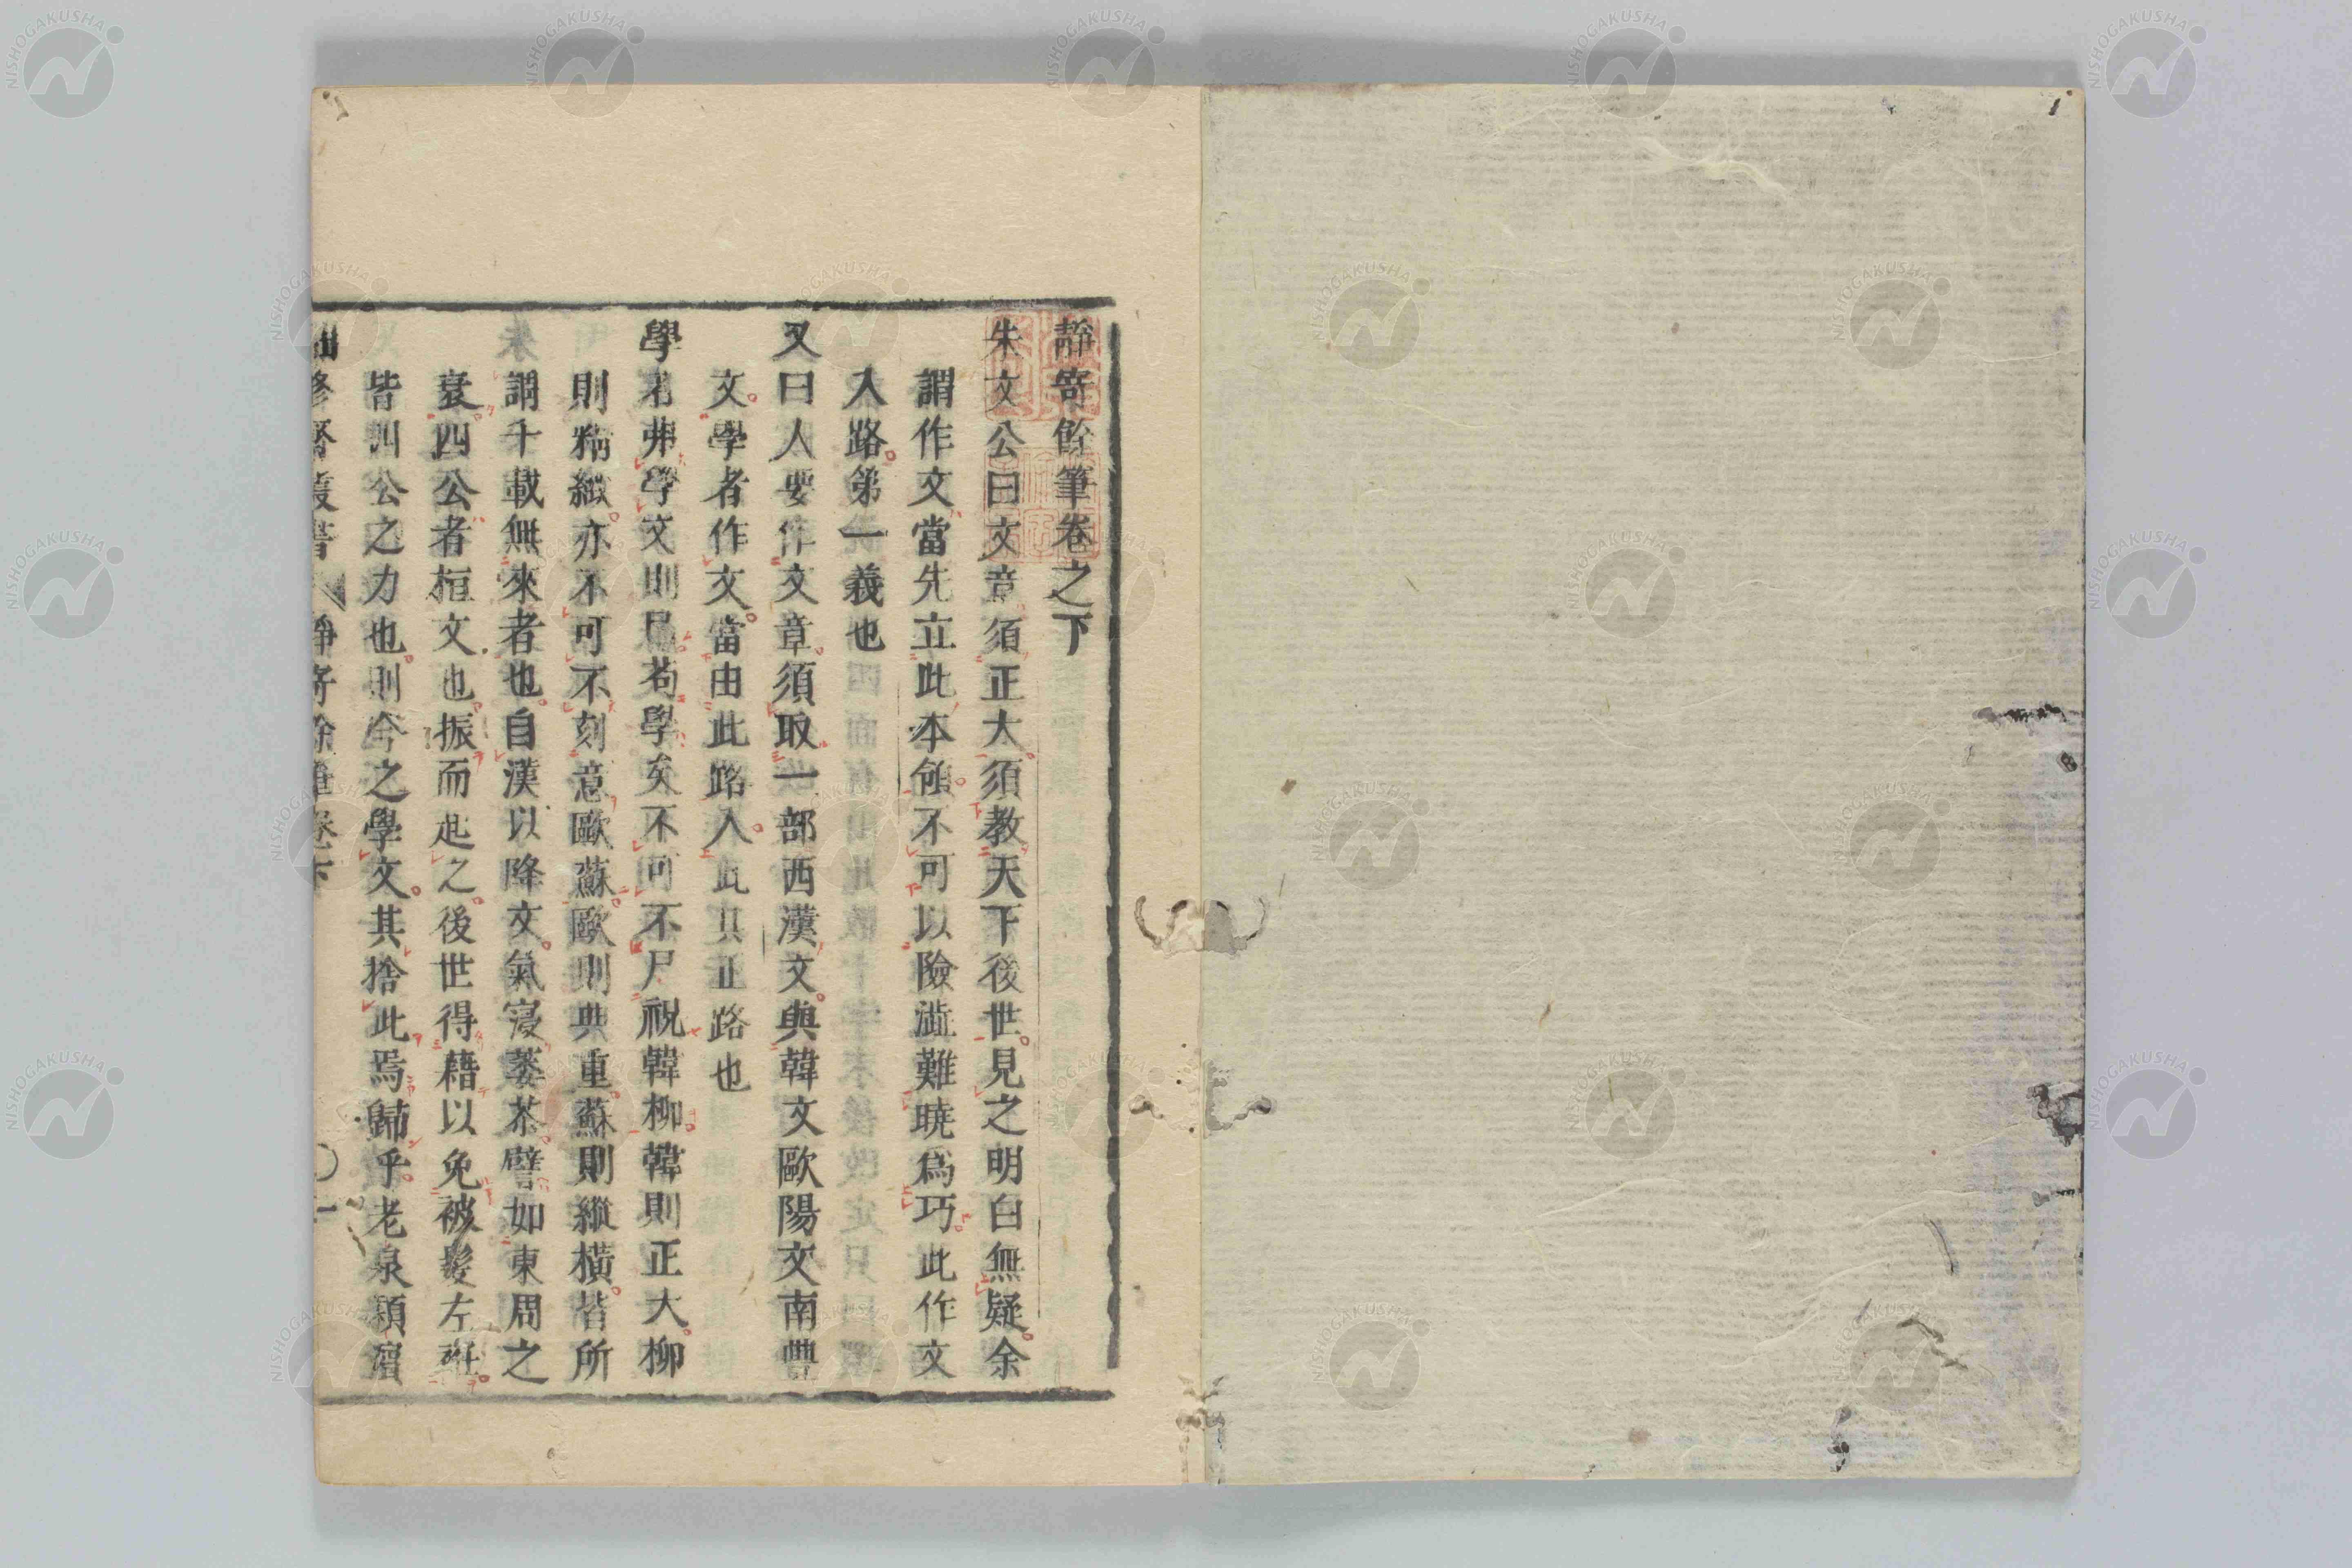 靜寄餘筆卷之下
朱文公曰文章須正大須教天下後世見之明白無疑余
謂作文當先立此本領不可以險澁難曉爲巧此作文
入路第一義也
又曰人要作文章須取一部西漢文與韓文歐陽文南豐
文學者作文當由此路入此其正路也
學者弗學文則已苟學矣不可不尸祝韓柳韓則正大柳
則精緻亦不可不刻意歐蘇歐則典重蘇則縱橫皆所
謂千載無來者也自漢以降文氣寖萎苶譬如東周之
衰四公者桓文也振而起之後世得藉以免被髮左衽
皆四公之力也則今之學文其捨此焉歸乎老泉潁濱
修齋叢書 靜寄餘筆卷下 〇一
NISHOGAKUSHA